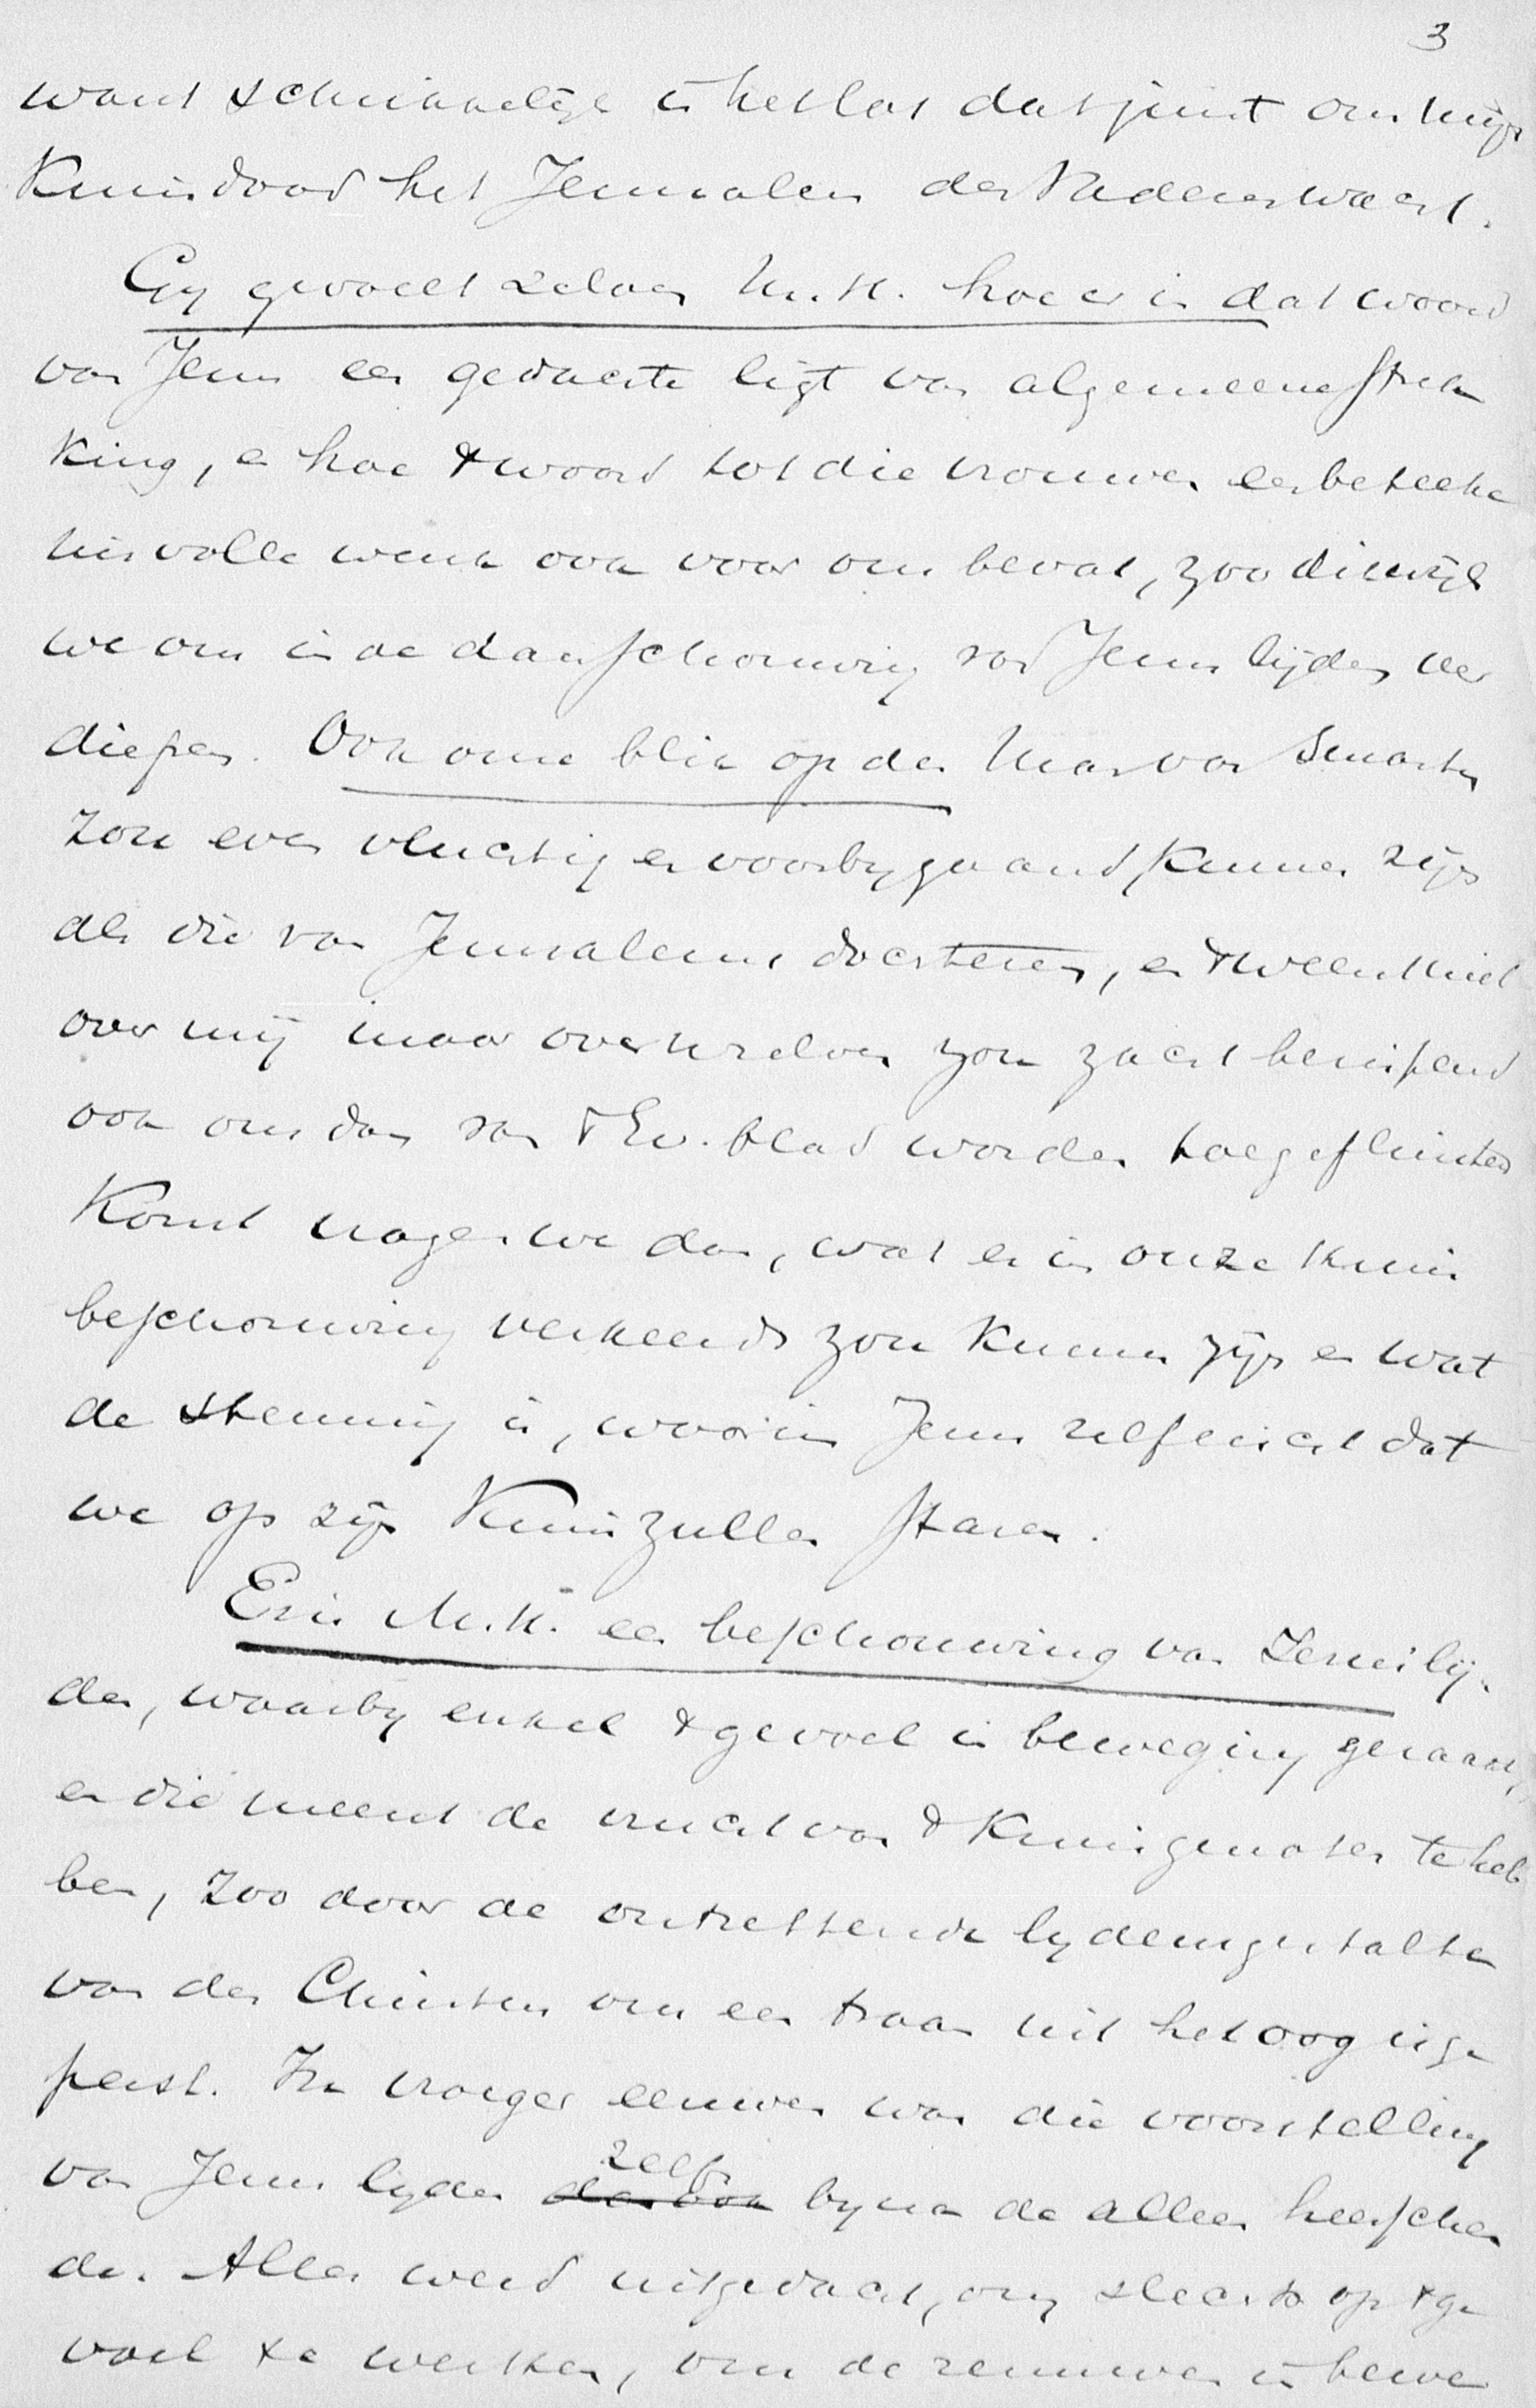 3
want schrikkelijk is het lot dat juist om mijn
Kruisdood het Jerusalem der Vaderen wacht.
Gij gevoelt zelven M.H. hoe er in dat woord
van Jezus een gedachte ligt van algemeene strek
king, en hoe 't woord tot die vrouwen een beteeke
nisvolle wenk ook voor ons bevat, zoo dikwijls
we ons in de aanschouwing van Jezus lijden ver
diepen. Ook onze blik op den Man van Smarten
zou even vluchtig en voorbijgaand kunnen zijn
als die van Jerusalems dochteren, en 't ween niet
over mij maar over u zelven zou zacht berispend
ook ons dan van 't Ev. blad worden toegefluisterd
Komt vragen we dan, wat er in onze kruis
beschouwing verkeerds zou kunnen zijn en wat
de stemming is, waarin Jezus zelf eischt dat
we op zijn Kruis zullen staren.
Er is M.H. een beschouwing van Jezus lij
den, waarbij enkel 't gevoel in beweging geraakt,
en die meent de vrucht van 't Kruis genoten te heb
ben, zoo door de ontzettende lijdensgestalte
van den Christus ons een traan uit het oog is ge
perst. In vroeger eeuwen was die voorstelling
van Jezus lijden dan ook zelfs bijna de alleen heerschen
de. Alles werd uitgedacht, om slechts op 't ge
voel te werken, om de zenuwen in bewe